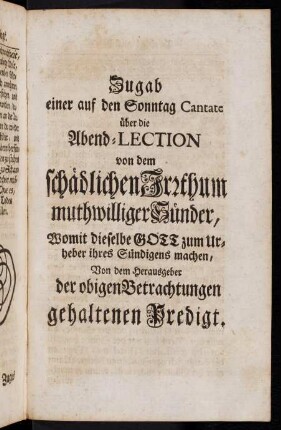 Zugab
einer auf den Sonntag Cantate
über die
Abend-LECTION
von dem
schädlichen Irrthum
muthwilliger Sünder,
Womit dieselbe GOTT zum Ur-
heber ihres Sündigens machen,
Von dem Herausgeber
der obigen Betrachtungen
gehaltenen Predigt.